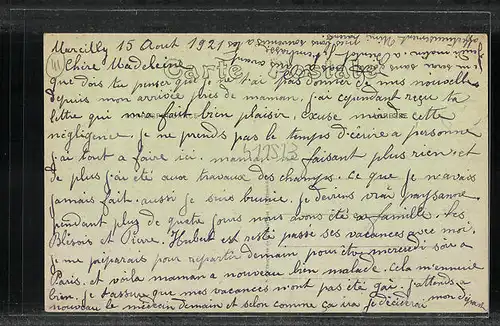 Marcilly 15 Aout 1921
Chère Madeleine
Carte Postale
que dois tu penser que je t'ai pas donner de mes nouvelles
depuis mon arrivée près de maman. j'ai cependant reçu ta
lettre qui m'a fait bien plaisir. excuse moi de cette
négligence. je ne prends pas le temps d'écrire a personne
j'ai tout a faire ici. maman ne faisant plus rien. et
de plus j'ai été aux travaux des champs. ce que je n'avais
jamais fait. aussi je suis brunie. je deviens vrai paysanne.
pendant plus de quatre jours nous avons été en famille. les
Blésois et Pierre. Hubert est resté passé ses vacances avec moi.
je me préparais pour repartir demain pour être mercredi soir a
Paris. et voila maman a nouveau bien malade. Cela m'ennuie
bien. je t'assure que mes vacances m'ont pas été gai. j'attends a
nouveau le médecin demain et selon comme ça ira je déciderai
mon départ
411513